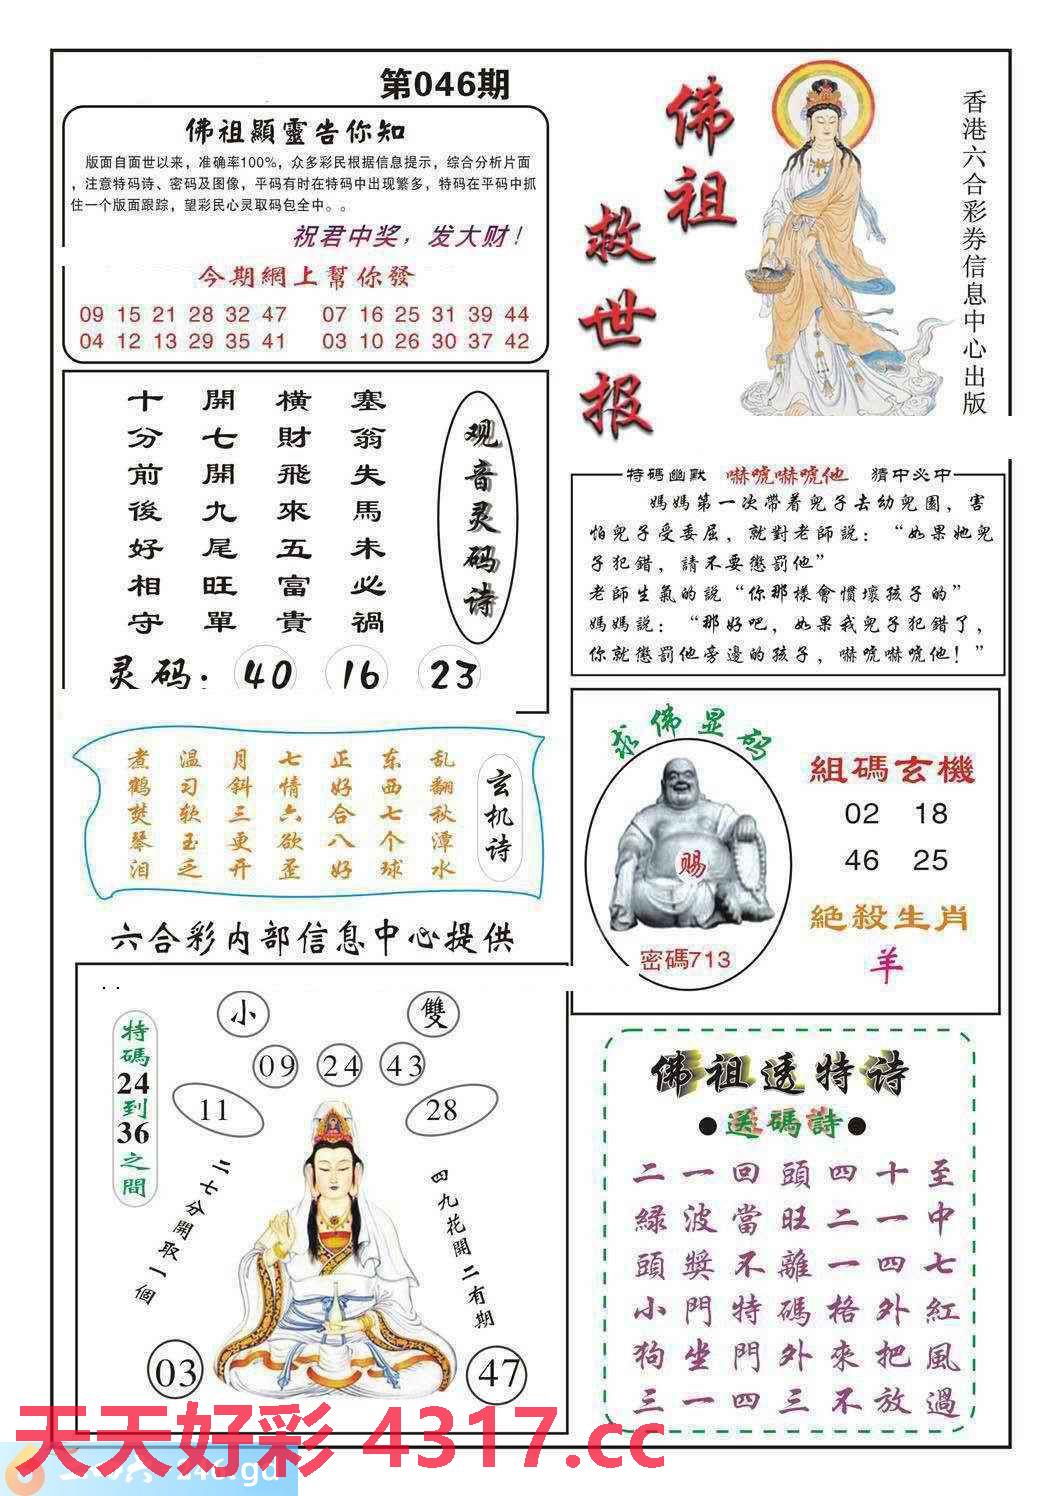 第046期
佛祖顯靈告你知
版面自面世以来，准确率100%，众多彩民根据信息提示，综合分析片面
，注意特码诗、密码及图像，平码有时在特码中出现繁多，特码在平码中抓
住一个版面跟踪，望彩民心灵取码包全中。。
祝君中奖，发大财！
今期網上幫你發
09 15 21 28 32 47 07 16 25 31 39 44
04 12 13 29 35 41 03 10 26 30 37 42
佛祖
救世报
香港六合彩券信息中心出版
观音灵码诗
塞翁失馬未必禍
橫財飛來五富貴
開七開九尾旺單
十分前後好相守
灵码: 40 16 23
特碼幽默 嚇唬嚇唬他 猜中必中
媽媽第一次帶着兒子去幼兒園，害
怕兒子受委屈，就對老師説：“如果她兒
子犯錯，請不要懲罰他”
老師生氣的説“你那樣會慣壞孩子的”
媽媽説：“那好吧，如果我兒子犯錯了，
你就懲罰他旁邊的孩子，嚇唬嚇唬他！”
玄机诗
乱翻秋潭水
东西七个球
正好合八好
七情六欲歪
月斜三更开
温习软玉乏
煮鹤焚琴泪
求佛显码
赐
密碼713
組碼玄機
02 18
46 25
絕殺生肖
羊
六合彩内部信息中心提供
特碼24到36之間
小 雙
09 24 43
11 28
二七分開取一個
四九花開二有期
03 47
佛祖透特诗
●送碼詩●
二一回頭四十至
緑波當旺二一中
頭獎不離一四七
小門特碼格外紅
狗坐門外來把風
三一四三不放過
天天好彩 4317.cc
246.gd